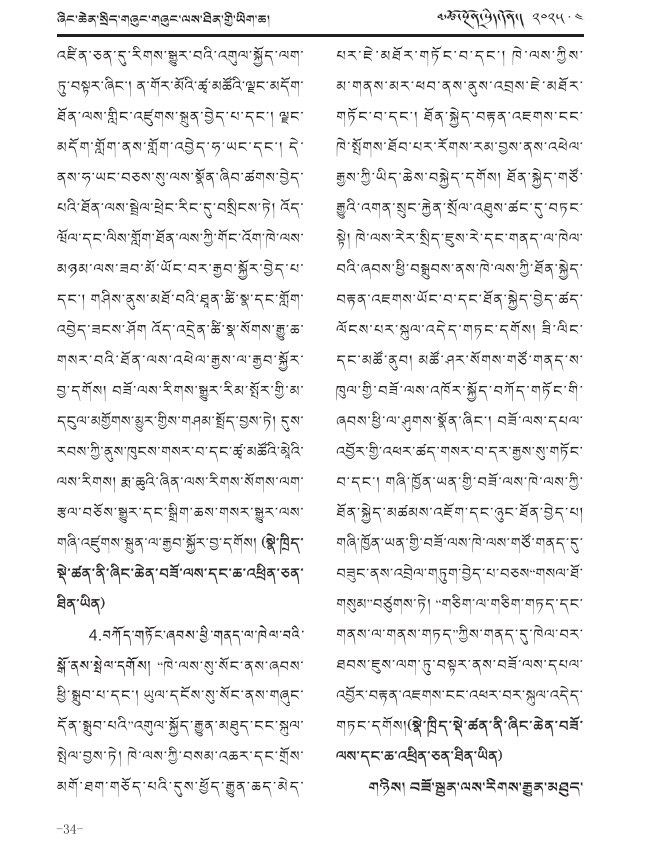 ཞིང་ཆེན་སྲིད་གཞུང་གཞུང་ལས་ཐིན་གྱི་ཡིག་ཆ།
༢༠༢༥ · ༤
འཛིན་ཅན་དུ་རིགས་སྒྱུར་བའི་འགུལ་སྐྱོད་ལག་
ཏུ་བསྟར་ཞིང་། ན་གོར་མོའི་ཚྭ་མཚོའི་ལྗང་མདོག་
ཐོན་ལས་གླིང་འཛུགས་སྐྲུན་བྱེད་པ་དང་། ལྗང་
མདོག་གློག་ནས་གློག་འབྱེད་ཧ་ཡང་དང་། དེ་
ནས་ཧ་ཡང་བཅས་སུ་ལས་སྣོན་ཞིབ་ཚགས་བྱེད་
པའི་ཐོན་ལས་སྦྲེལ་ཕྲེང་རིང་དུ་བསྲིངས་ཏེ། འོད་
ཝོལ་དང་ལིས་གློག་ཐོན་ལས་ཀྱི་གོང་འོག་ཁེ་ལས་
མཉམ་ལས་ཟབ་མོ་ཡོང་བར་རྒྱབ་སྐྱོར་བྱེད་པ་
དང་། གཤིས་ནུས་མཐོ་བའི་ཐུན་ཚི་སྣ་དང་གློག་
འབྱེད་ཟངས་ཤོག འོད་འདྲེན་ཚི་སྣ་སོགས་རྒྱུ་ཆ་
གསར་བའི་ཐོན་ལས་འཕེལ་རྒྱས་ལ་རྒྱབ་སྐྱོར་
བྱ་དགོས། བཟོ་ལས་རིགས་སྒྱུར་རིམ་སྤོར་གྱི་མ་
དངུལ་མགྱོགས་མྱུར་གྱིས་གཤམ་སྤྲོད་བྱས་ཏེ། དུས་
རབས་ཀྱི་ནུས་ཁུངས་གསར་བ་དང་ཚྭ་མཚོའི་མྱེའི་
ལས་རིགས། རྨ་ཆུའི་ཞིན་ལས་རིགས་སོགས་ལག་
རྩལ་བཅོས་སྒྱུར་དང་སྒྲིག་ཆས་གསར་སྒྱུར་ལས་
གཞི་འཛུགས་སྐྲུན་ལ་རྒྱབ་སྐྱོར་བྱ་དགོས། (སྣེ་ཁྲིད་
སྡེ་ཚན་ནི་ཞིང་ཆེན་བཟོ་ལས་དང་ཆ་འཕྲིན་ཅན་
ཐིན་ཡིན)
4.བཀོད་གཏོང་ཞབས་ཕྱི་གནད་ལ་ཁེལ་བའི་
སྒོ་ནས་སྤེལ་དགོས། “ཁེ་ལས་སུ་སོང་ནས་ཞབས་
ཕྱི་སྒྲུབ་པ་དང་། ཡུལ་དངོས་སུ་སོང་ནས་གཞུང་
དོན་སྒྲུབ་པའི”འགུལ་སྐྱོད་རྒྱུན་མཐུད་ངང་སྐུལ་
སྤེལ་བྱས་ཏེ། ཁེ་ལས་ཀྱི་བསམ་འཆར་དང་གྲོས་
མགོ་ཐག་གཅོད་པའི་དུས་ཕྱོད་རྒྱུན་ཆད་མེད་
པར་ཇེ་མཐོར་གཏོང་བ་དང་། ཁེ་ལས་ཀྱིས་
མ་གནས་མར་ཕབ་ནས་ནུས་འབྲས་ཇེ་མཐོར་
གཏོང་བ་དང་། ཐོན་སྐྱེད་བརྟན་འཇགས་ངང་
ཁེ་སྤོགས་ཐོབ་པར་རོགས་རམ་བྱས་ནས་འཕེལ་
རྒྱས་ཀྱི་ཡིད་ཆེས་བསྐྱེད་དགོས། ཐོན་སྐྱེད་གཙོ་
རྒྱུའི་འགན་སྲུང་རྐྱེན་སྲོལ་འཐུས་ཚང་དུ་བཏང་
སྟེ། ཁེ་ལས་རེར་སྲིད་ཇུས་རེ་དང་གནད་ལ་ཁེལ་
བའི་ཞབས་ཕྱི་བསྒྲུབས་ནས་ཁེ་ལས་ཀྱི་ཐོན་སྐྱེད་
བརྟན་འཇགས་ཡོང་བ་དང་ཐོན་སྐྱེད་བྱེད་ཚད་
ལོངས་པར་སྐུལ་འདེད་གཏང་དགོས། ཟི་ལིང་
དང་མཚོ་ནུབ། མཚོ་ཤར་སོགས་གཙོ་གནད་ས་
ཁུལ་གྱི་བཟོ་ལས་འཁོར་སྐྱོད་བཀོད་གཏོང་གི་
ཞབས་ཕྱི་ལ་ཤུགས་སྣོན་ཞིང་། བཟོ་ལས་དཔལ་
འབྱོར་གྱི་འཕར་ཚད་གསར་བ་དར་རྒྱས་སུ་གཏོང་
བ་དང་། གཞི་ཁྱོན་ཡན་གྱི་བཟོ་ལས་ཁེ་ལས་ཀྱི་
ཐོན་སྐྱེད་མཚམས་འཇོག་དང་ཉུང་ཐོན་བྱེད་པ།
གཞི་ཁྱོན་ཡན་གྱི་བཟོ་ལས་ཁེ་ལས་གཙོ་གནད་དུ་
བཟུང་ནས་འབྲེལ་གཏུག་བྱེད་པ་བཅས“གསལ་ཐོ་
གསུམ”བཙུགས་ཏེ། “གཅིག་ལ་གཅིག་གཏད་དང་
གནས་ལ་གནས་གཏད”ཀྱིས་གནད་དུ་ཁེལ་བར་
ཐབས་ཇུས་ལག་ཏུ་བསྟར་ནས་བཟོ་ལས་དཔལ་
འབྱོར་བརྟན་འཇགས་ངང་འཕར་བར་སྐུལ་འདེད་
གཏང་དགོས།(སྣེ་ཁྲིད་སྡེ་ཚན་ནི་ཞིང་ཆེན་བཟོ་
ལས་དང་ཆ་འཕྲིན་ཅན་ཐིན་ཡིན)
གཉིས། བཟོ་སྐྲུན་ལས་རིགས་རྒྱུན་མཐུད་
-34-